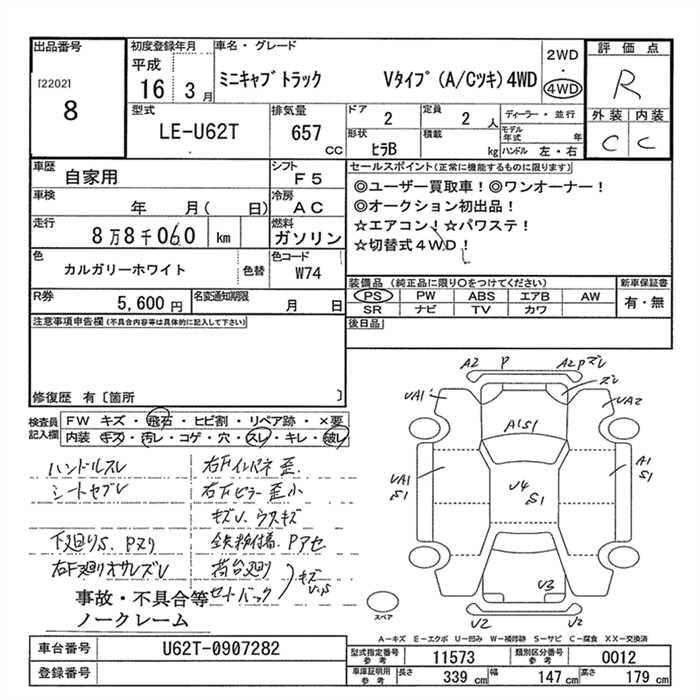 出品番号
[2202]
8
初度登録年月
平成
16 3月
車名・グレード
ミニキャブトラック Vタイプ(A/Cツキ)4WD
2WD
・
4WD
評価点
R
外装 内装
C C
型式
LE-U62T
排気量
657 CC
ドア
2
定員
2 人
ディーラー・並行
モデル年式 年
形状
ヒラB
積載
kg
ハンドル 左・右
車歴
自家用
シフト
F5
車検
年 月( 日)
冷房
AC
走行
8万8千060 km
燃料
ガソリン
色
カルガリーホワイト
色替
色コード
W74
R券
5,600円
名変通知期限
月 日
セールスポイント(正常に機能するものに限ります)
◎ユーザー買取車!◎ワンオーナー!
◎オークション初出品!
☆エアコン!☆パワステ!
☆切替式4WD!
装備品(純正品に限り○をつけてください)
PS PW ABS エアB AW
SR ナビ TV カワ
新車保証書
有・無
後日品
注意事項申告欄(不具合内容等は具体的に記入して下さい)
修復歴 有〔箇所 〕
検査員記入欄
FW キズ・飛石・ヒビ割・リペア跡・×要
内装・キズ・汚レ・コゲ・穴・スレ・キレ・破レ
ハンドルスレ
シートセブレ
下廻りS、Pヌリ
右F廻りオサレズレ
右Fインパネ歪
右Fピラー歪小
キズU、ウスキズ
鉄粉付着、Pアセ
荷台廻り
セットバック
キズ
U、S
事故・不具合等
ノークレーム
A2 P A2Pズレ
ズレ
UA1 UA2
A1S1
UA1
S1
U4
S1
A1
S1
U3
U2 U2
スペア
A-キズ E-エクボ U-凹み W-補修跡 S-サビ C-腐食 XX-交換済
車台番号
U62T-0907282
登録番号
型式指定番号参考
11573
類別区分番号参考
0012
車庫証明用参考
長さ 339 cm 幅 147 cm 高さ 179 cm